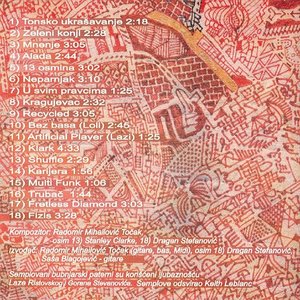 1) Tonsko ukrašavanje 2:18
2) Zeleni konji 2:28
3) Mnenje 3:05
4) Alada 2:44
5) 13 osmina 3:02
6) Neparnjak 3:10
7) U svim pravcima 1:25
8) Kragujevac 2:32
9) Recycled 3:05
10) Bez basa (Loli) 2:46
11) Artificial Player (Lazi) 1:25
12) Klark 4:33
13) Shuffle 2:29
14) Karijera 1:56
15) Multi Funk 1:06
16) Trubač 1:44
17) Fretless Diamond 3:03
18) Fizis 3:18
Kompozitor: Radomir Mihajlović Točak,
osim 13) Stanley Clarke, 18) Dragan Stefanović
Izvođač: Radomir Mihajlović Točak (gitare, bas, Midi), osim 18) Dragan Stefanović,
Saša Blagojević - gitare
Samplovani bubnjarski paterni su korišćeni ljubaznošću
Laze Ristovskog i Gorana Stevanovića. Samplove odsvirao Keith Leblanc